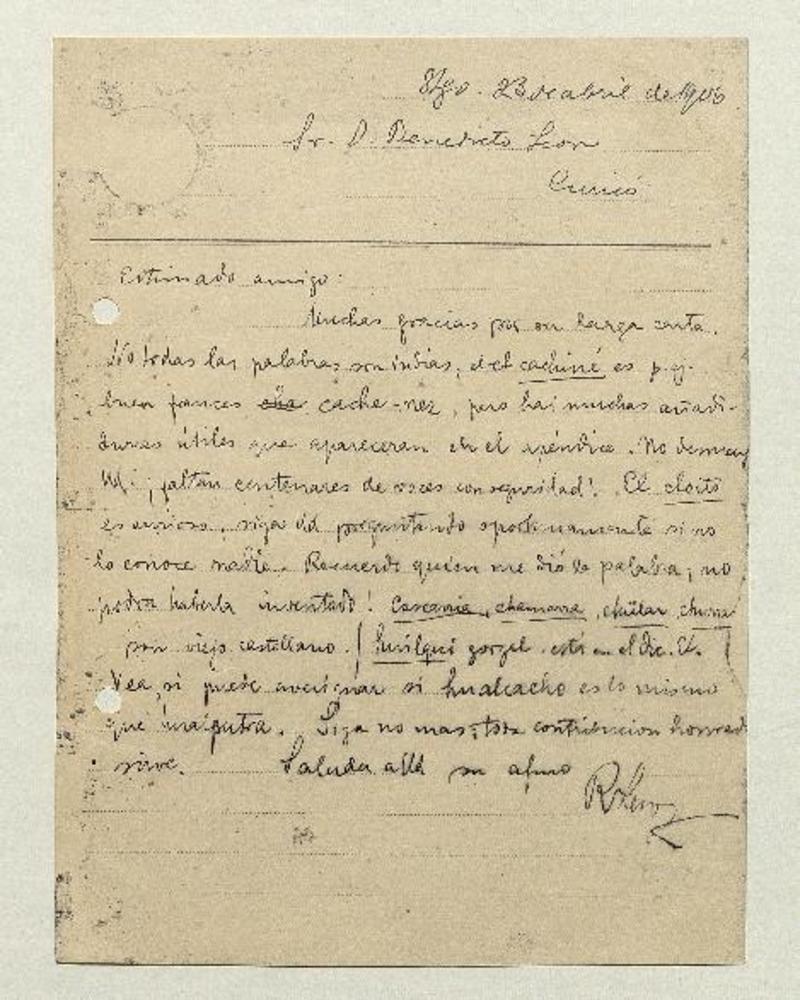 Stgo. 23 de abril de 1906
Sr. D. Benedicto Leon
Curicó
Estimado amigo:
Muchas gracias por su larga carta.
No todas las palabras son indias, el cachiné es p. ej.
buen frances cache-nez, pero hai muchas añadi-
duras útiles que apareceran en el apéndice. No desmaye
Ud. ¡faltan centenares de voces con seguridad! El
es curioso, siga Ud preguntando oportunamente si no
lo conoce nadie. Recuerdo quien me dió la palabra; no
podra haberla inventado! chamarra,
son viejo castellano. (huilqui está en el dic.
Vea si puede averiguar si hualcacho es lo mismo
que . Siga no mas; toda contribucion honrada
sirve. Saluda a Ud su afmo
RLenz